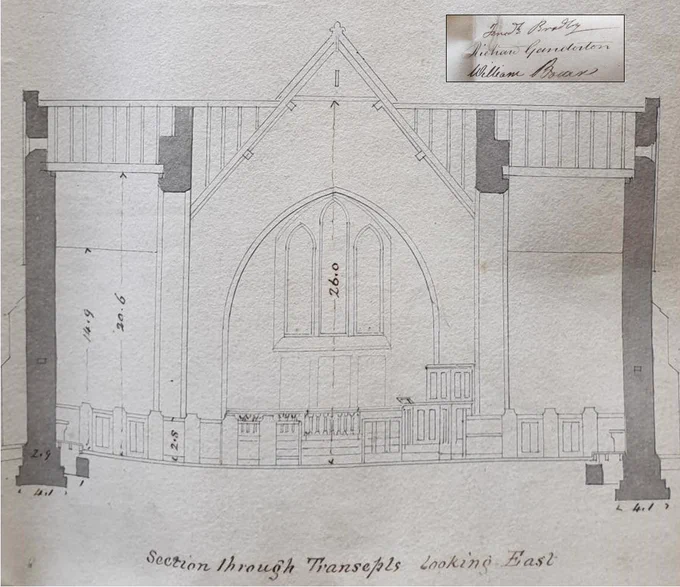 Bradly
Ganderton
William
26.0
14.9
20.6
2.8
2.9
4.1
4.1
Section through Transepts Looking East